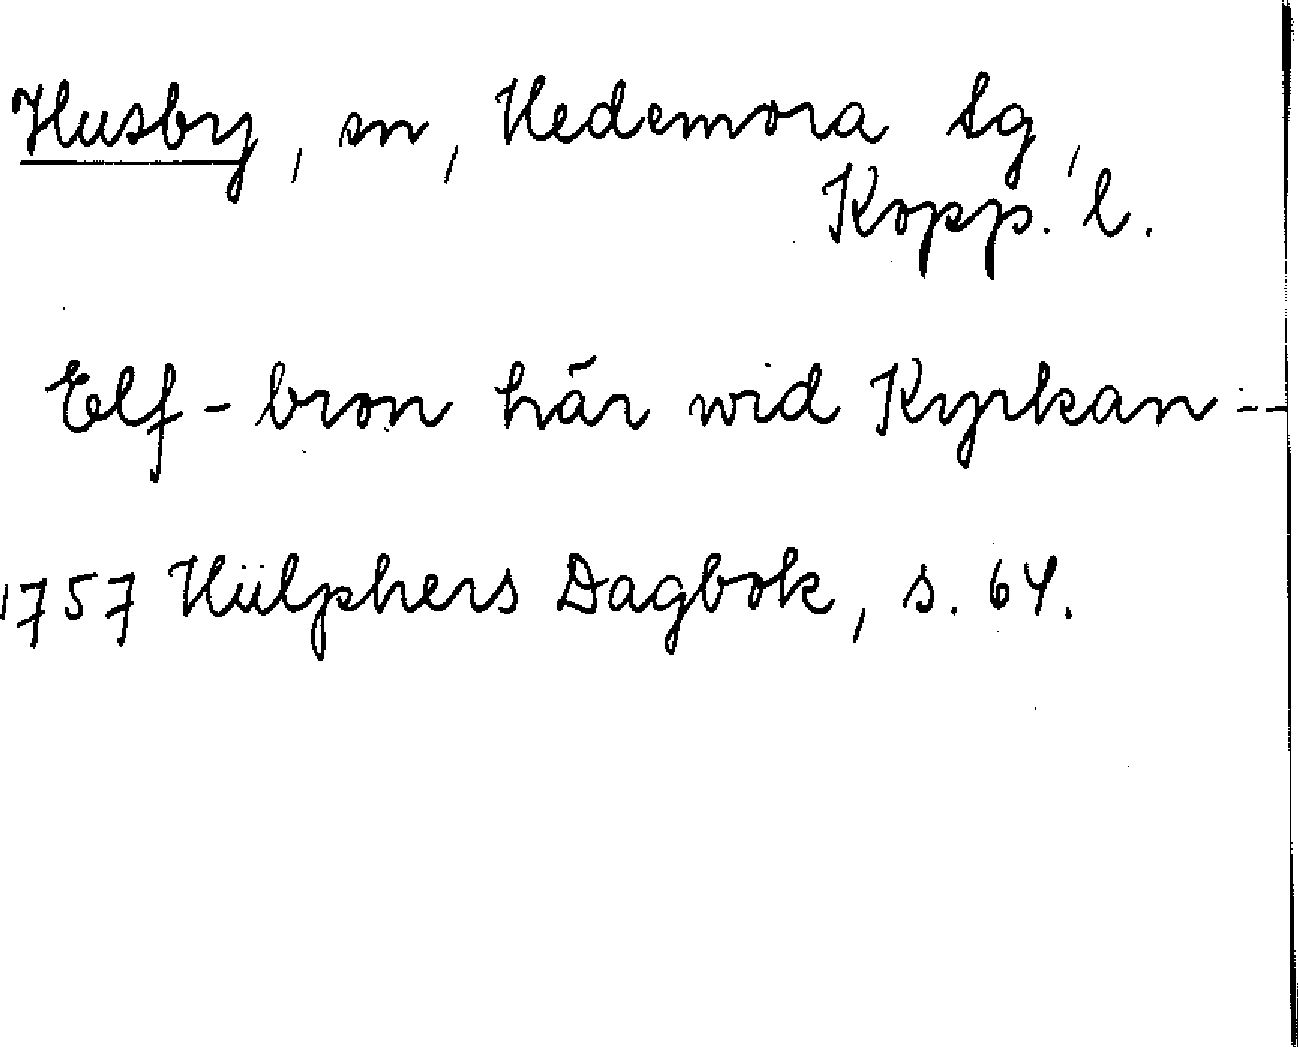 Husby, sn, Hedemora tg,
Kopp. l.
Elf-bron här wid Kyrkan --
1757 Hülphers Dagbok, s. 64.